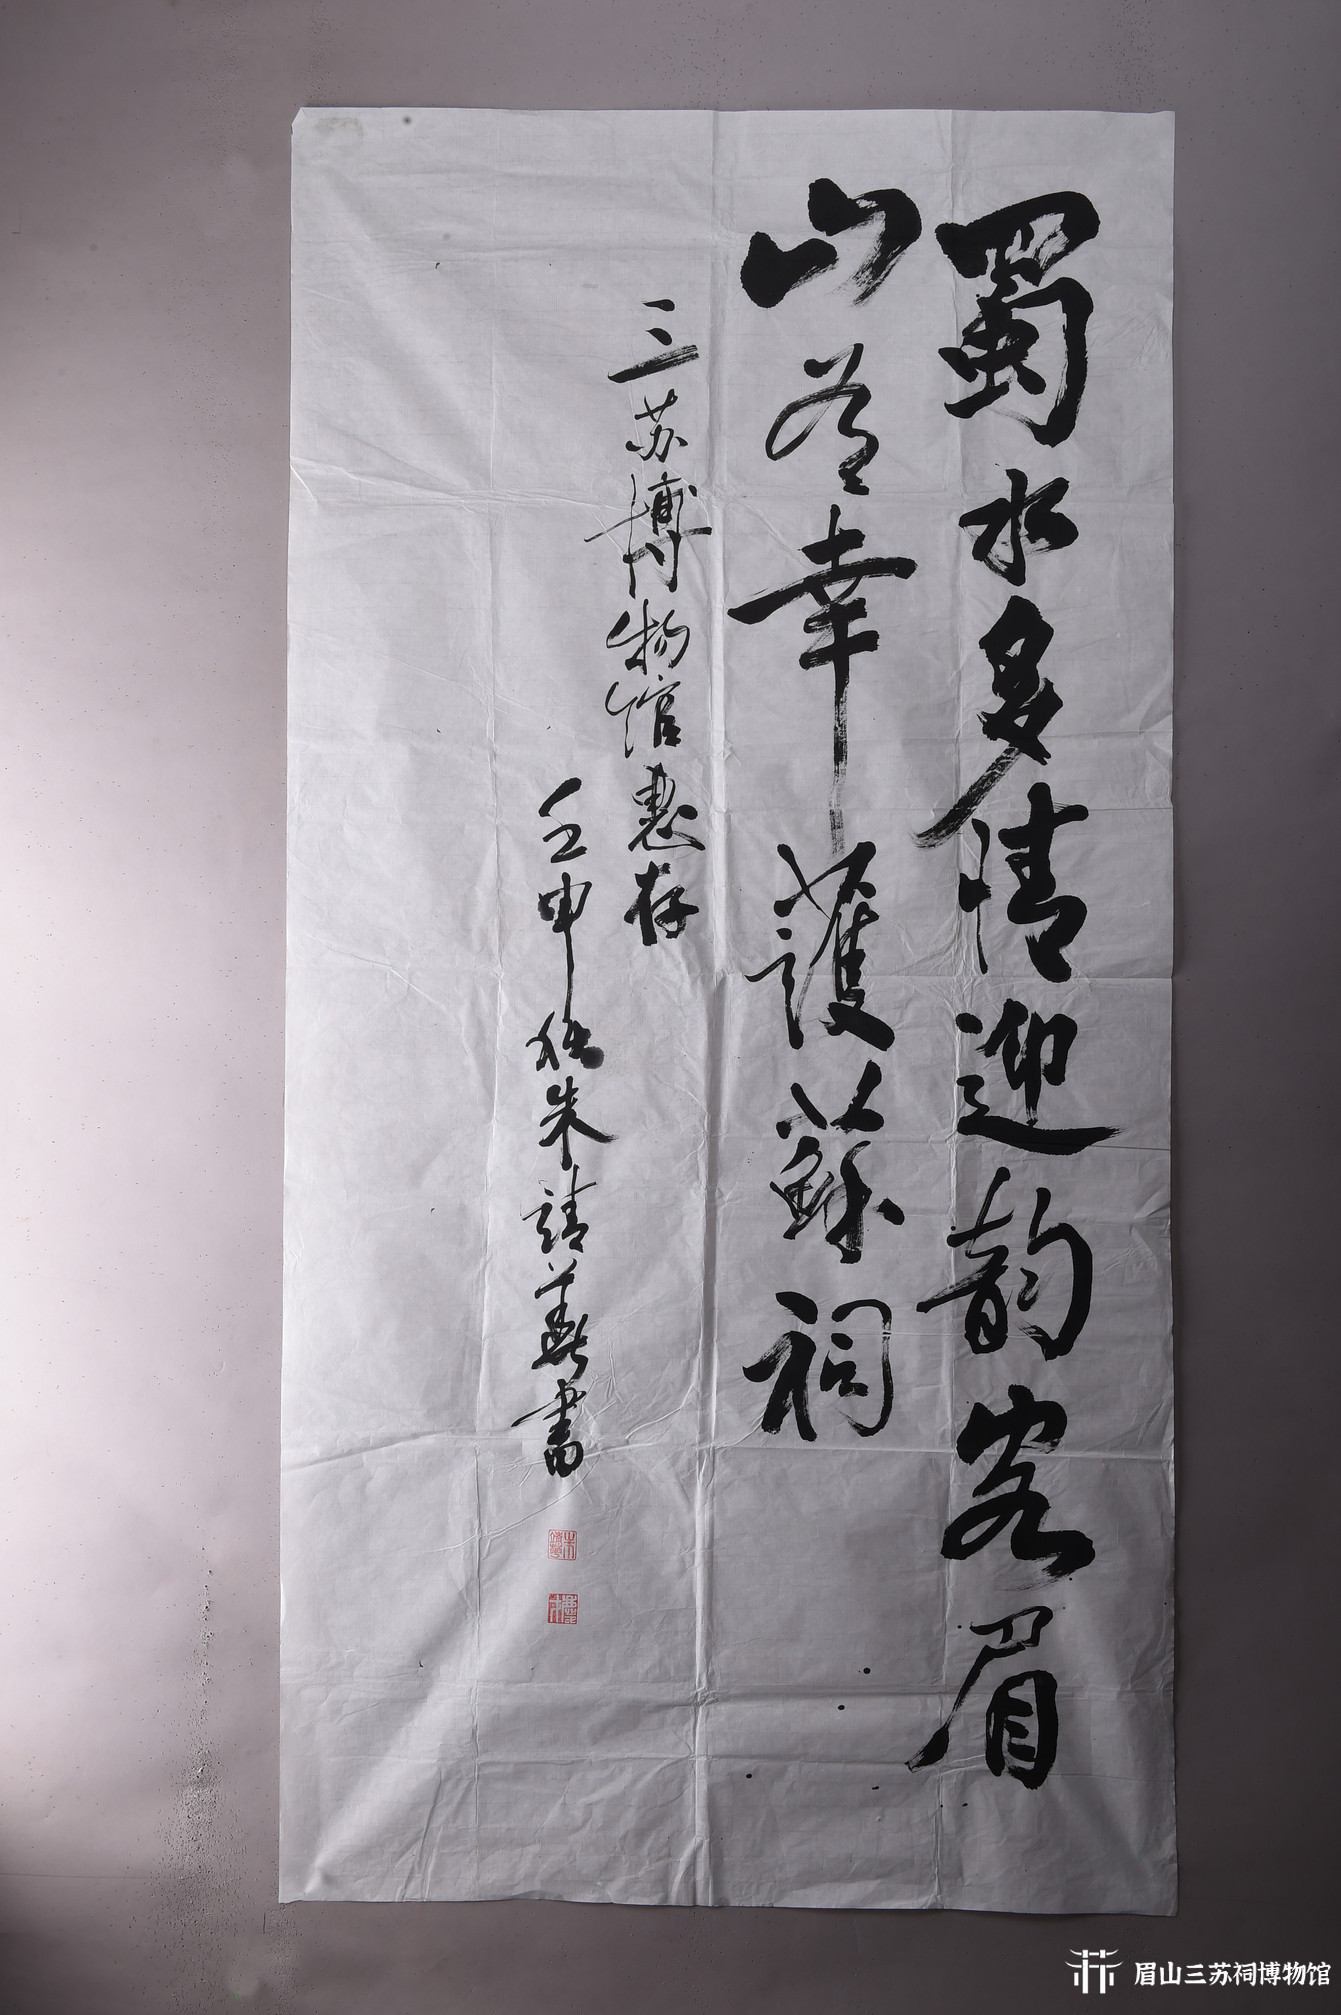 蜀水多情迎韵客眉
山有幸護蘇祠
三苏博物馆惠存
壬申秋朱靖華書
眉山三苏祠博物馆